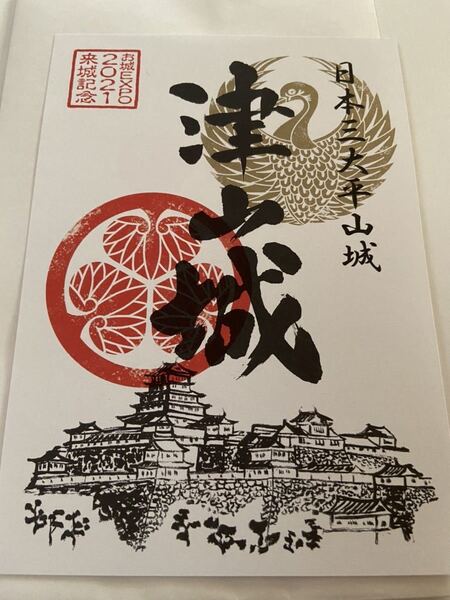 日本三大平山城
津山城
お城EXPO
2021
来城記念